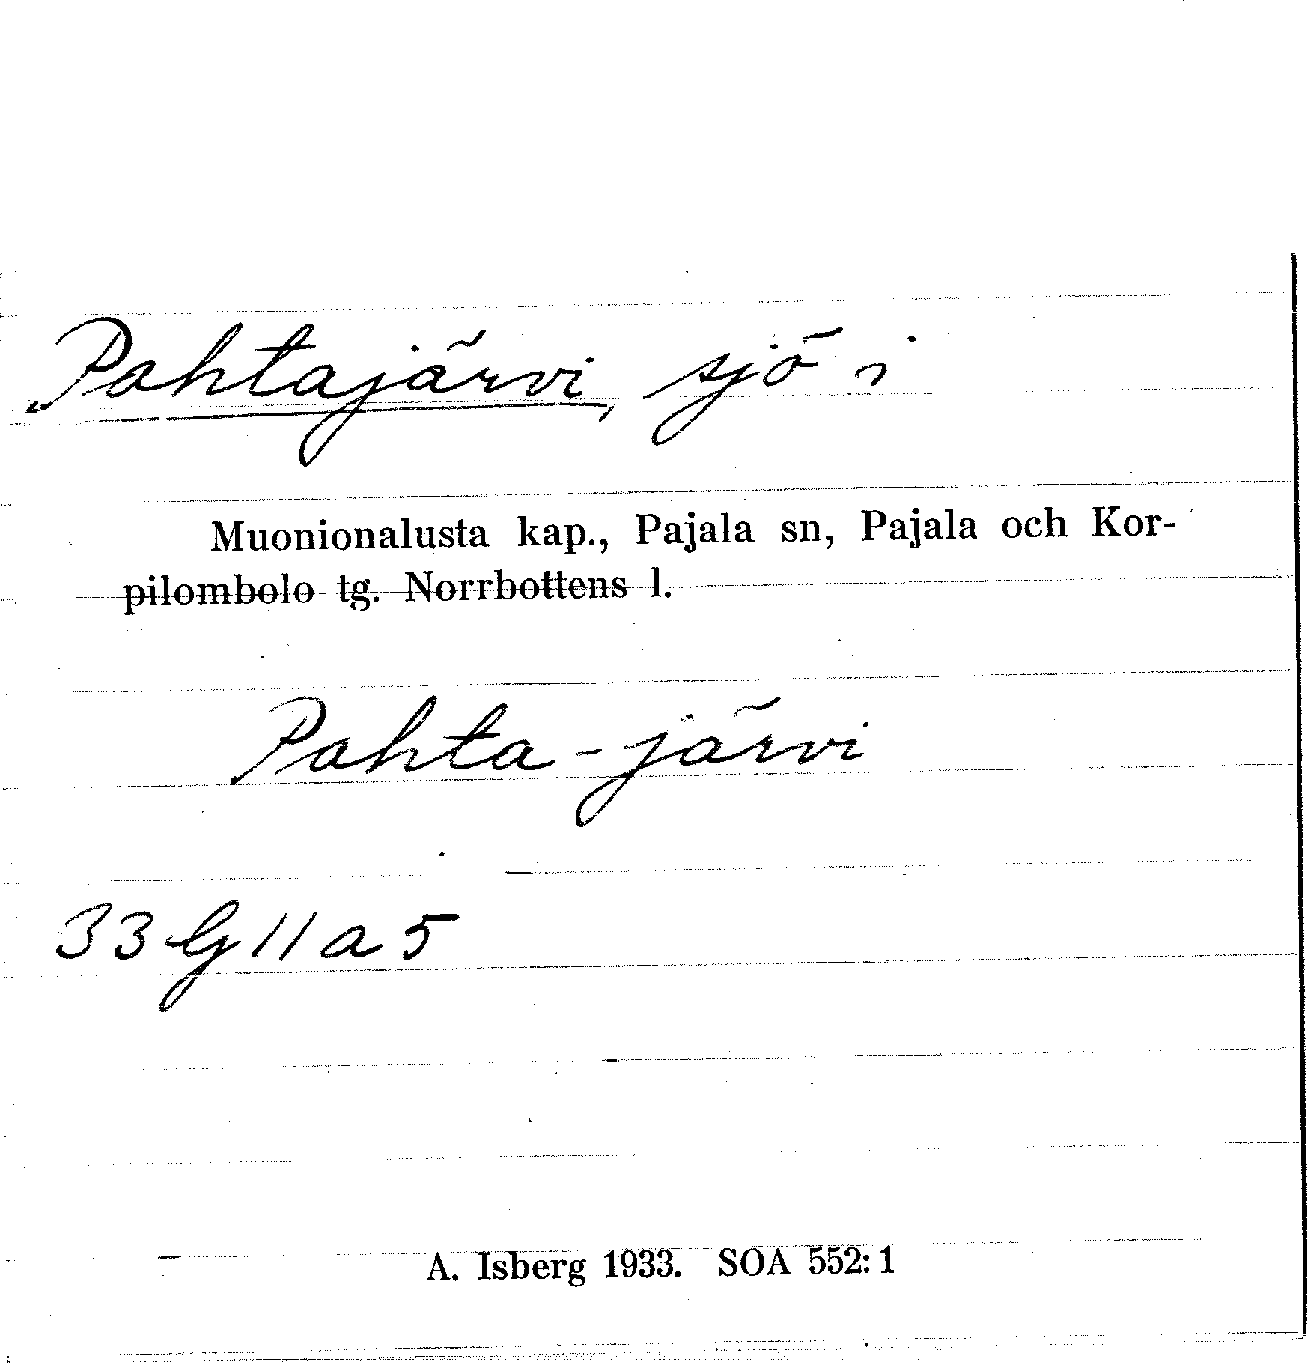 Pahtajärvi, sjö i
Muonionalusta kap., Pajala sn, Pajala och Kor-
pilombolo tg. Norrbottens l.
Pahta-järvi
33 G 11 a 5
A. Isberg 1933. SOA 552: 1